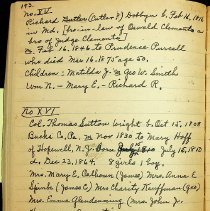 192.
No. XV.
Richard Sutton (Cutler?) Dobbyn b. Feb 16, 1816
in Md. [bro-in-law of Oswald Clements &
bro of Judge Clements]
m. Feb. 16. 1846 to Prudence Purcell
who died Mar 16.1875 ae 50.
Children: Matilda J. m Geo W. Smith
Wm R. - Mary E. - Richard R.
No XVI
Col. Thomas Sutton Wright b. Oct 15, 1808
Bucks Co. Pa. m Nov 1830 to Mary Hoff
of Hopewell, N.J. born July 15, 1810
d. Dec 23, 1864. 8 girls 1 boy.
Mrs. Mary E. Calhoun (James) Mrs. Emma E.
(James C) Mrs Charity Kauffman (Geo)
Mrs. Emma Glendenning (Mrs. John J.